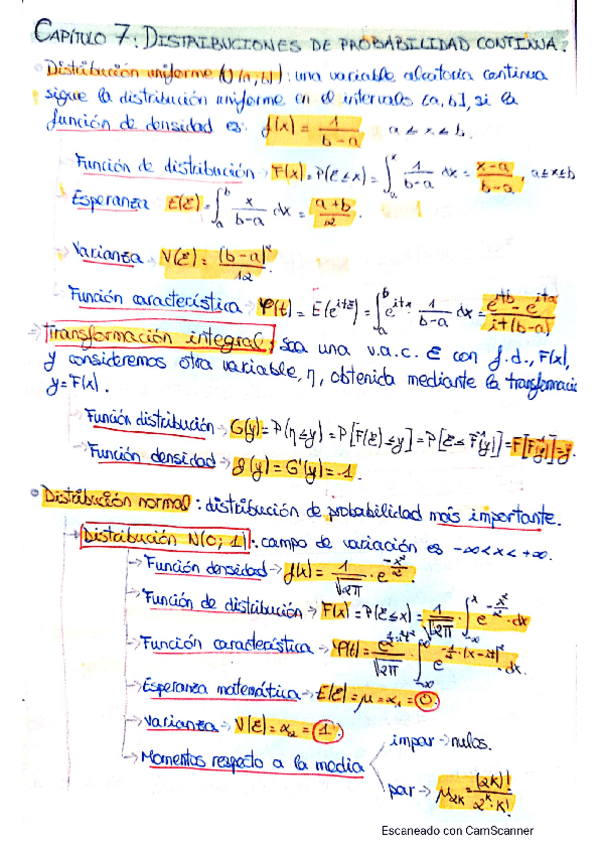 CAPÍTULO 7: DISTRIBUCIONES DE PROBABILIDAD CONTINUA.
Distribución uniforme U(a,b): una variable aleatoria continua
sigue la distribución uniforme en el intervalo (a,b], si la
función de densidad es: f(x) = 1/(b-a) a ≤ x ≤ b.
Función de distribución → F(x) = P(ξ ≤ x) = ∫_a^x 1/(b-a) dx = (x-a)/(b-a), a ≤ x ≤ b
Esperanza E(ξ) = ∫_a^b x/(b-a) dx = (a+b)/2.
Varianza → V(ξ) = (b-a)²/12.
Función característica → φ(t) = E(e^{itξ}) = ∫_a^b e^{itx} · 1/(b-a) dx = (e^{itb} - e^{ita})/(it(b-a))
→ Transformación integral: sea una v.a.c. ξ con f.d., F(x),
y consideremos otra variable, η, obtenida mediante la transformació
y = F(x).
Función distribución → G(y) = P(η ≤ y) = P[F(ξ) ≤ y] = P[ξ ≤ F⁻¹(y)] = F[F⁻¹(y)] = y.
Función densidad → g(y) = G'(y) = 1.
Distribución normal: distribución de probabilidad más importante.
→ Distribución N(0; 1): campo de variación es -∞ < x < +∞.
→ Función densidad → f(x) = 1/√2π · e^{-x²/2}.
→ Función de distribución → F(x) = P(ξ ≤ x) = 1/√2π · ∫_{-∞}^x e^{-x²/2} · dx
→ Función característica → φ(t) = e^{½·i²t²}/√2π ∫_{-∞}^{∞} e^{-½·(x-it)²} · dx.
→ Esperanza matemática → E(ξ) = μ = α₁ = 0.
→ Varianza → V(ξ) = α₂ = 1.
→ Momentos respecto a la media
impar → nulos.
par → μ₂ₖ = (2k)!/(2^k · k!)
Escaneado con CamScanner